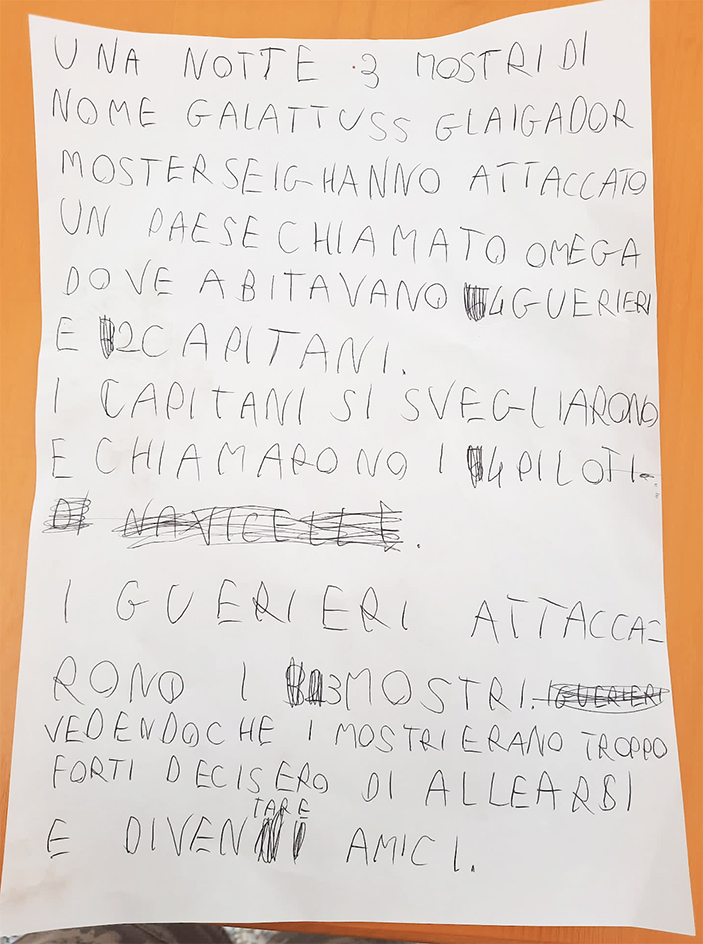 UNA NOTTE 3 MOSTRI DI
NOME GALATTUSS GLAIGADOR
MOSTERSEIG HANNO ATTACCATO
UN PAESE CHIAMATO OMEGA
DOVE ABITAVANO 4 GUERIERI
E 2 CAPITANI.
I CAPITANI SI SVEGLIARONO
E CHIAMARONO I 4 PILOTI
DI NAVICELLE.
I GUERIERI ATTACCA=
RONO I 3 MOSTRI. I GUERIERI
VEDENDO CHE I MOSTRI ERANO TROPPO
FORTI DECISERO DI ALLEARSI
TARE
E DIVEN AMICI.